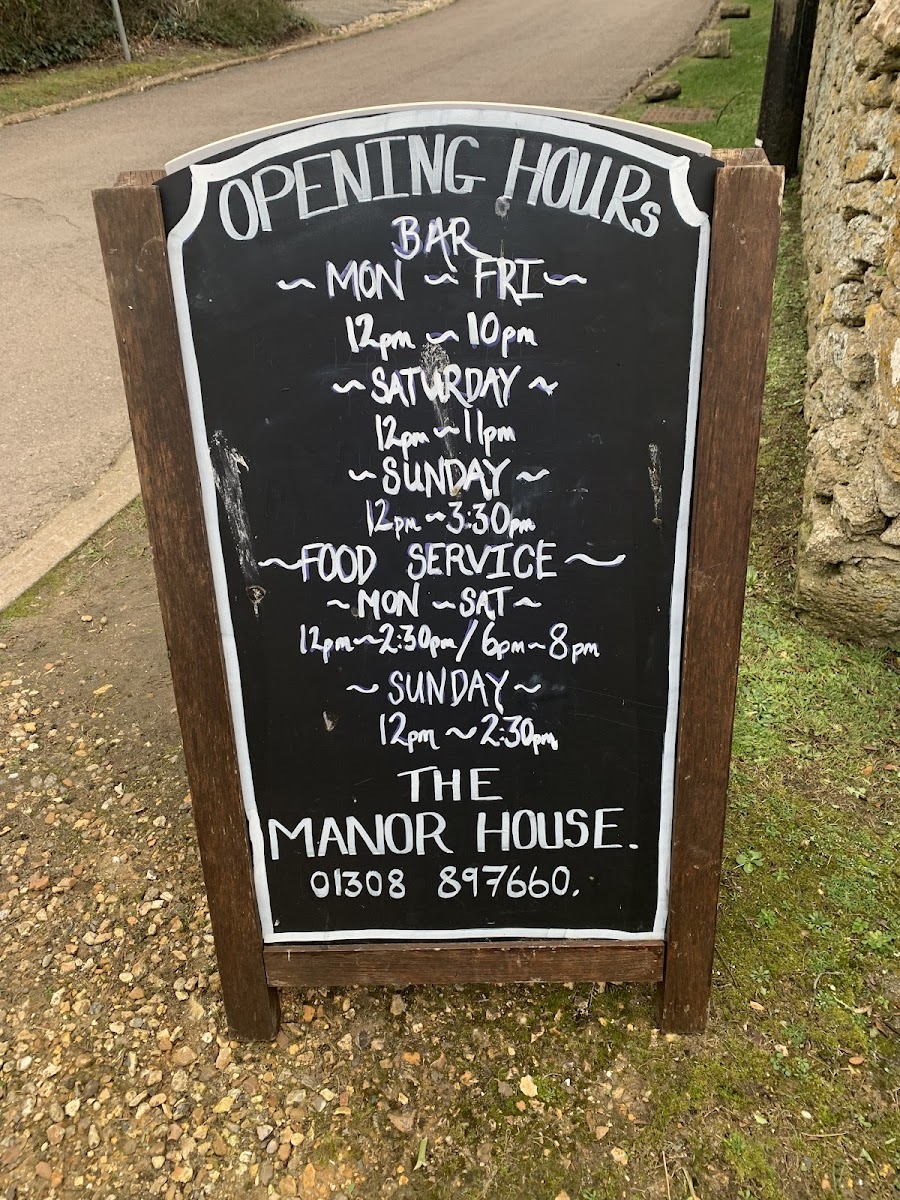 OPENING HOURs
BAR
~ MON ~ FRI ~
12pm ~ 10pm
~ SATURDAY ~
12pm ~ 11pm
~ SUNDAY ~
12pm ~ 3:30pm
~ FOOD SERVICE ~
~ MON ~ SAT ~
12pm ~ 2:30pm / 6pm ~ 8pm
~ SUNDAY ~
12pm ~ 2:30pm
THE
MANOR HOUSE.
01308 897660.